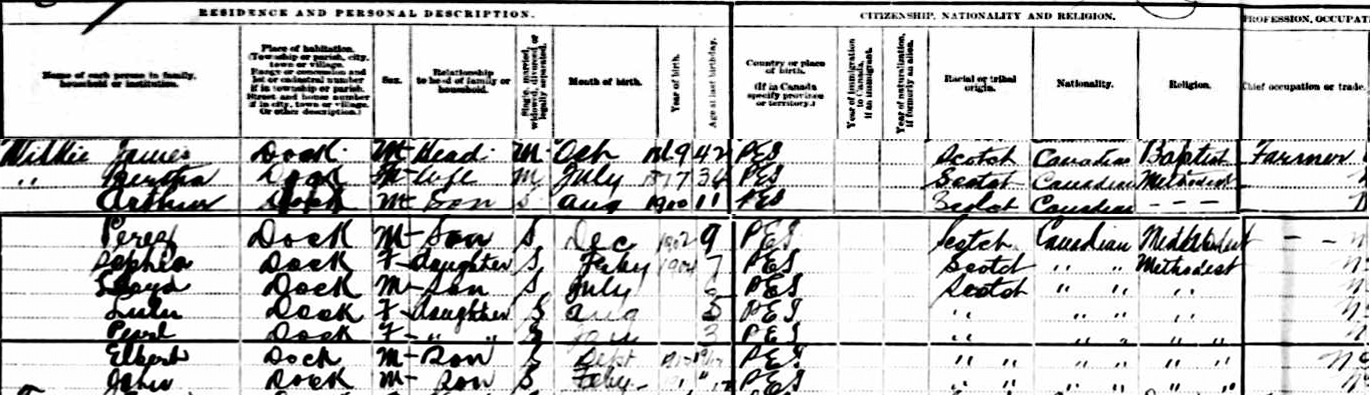 RESIDENCE AND PERSONAL DESCRIPTION. CITIZENSHIP, NATIONALITY AND RELIGION. PROFESSION, OCCUPAT
Name of each person in family, household or institution. Place of habitation. (Township or parish, city, town or village. Range or concession and lot or cadastral number if in township or parish. Street and house number if in city, town or village. Or other description.) Sex. Relationship to head of family or household. Single, married, widowed, divorced or legally separated. Month of birth. Year of birth. Age at last birthday. Country or place of birth. (If in Canada specify province or territory.) Year of immigration to Canada, if an immigrant. Year of naturalization, if formerly an alien. Racial or tribal origin. Nationality. Religion. Chief occupation or trade.
James Dock M Head M 42 PEI Scotch Canadian Baptist Farmer
" Bertha Dock Wife M July 34 PEI Scotch Canadian Methodist
Arthur Dock M Son S Aug 1900 11 PEI Scotch Canadian - - -
Percy Dock M Son S Dec 1902 9 PEI Scotch Canadian Methodist - -
Sophia Dock F daughter S Feby 1904 7 PEI Scotch " " Methodist
Lloyd Dock M Son S July 6 PEI Scotch " " "
Lulu Dock F daughter S Aug 5 PEI " " " "
Pearl Dock F " " S 3 PEI " " " "
Elbert Dock M Son S Sept PEI " " " " " "
John Dock M Son S Feby PEI " " " " " "